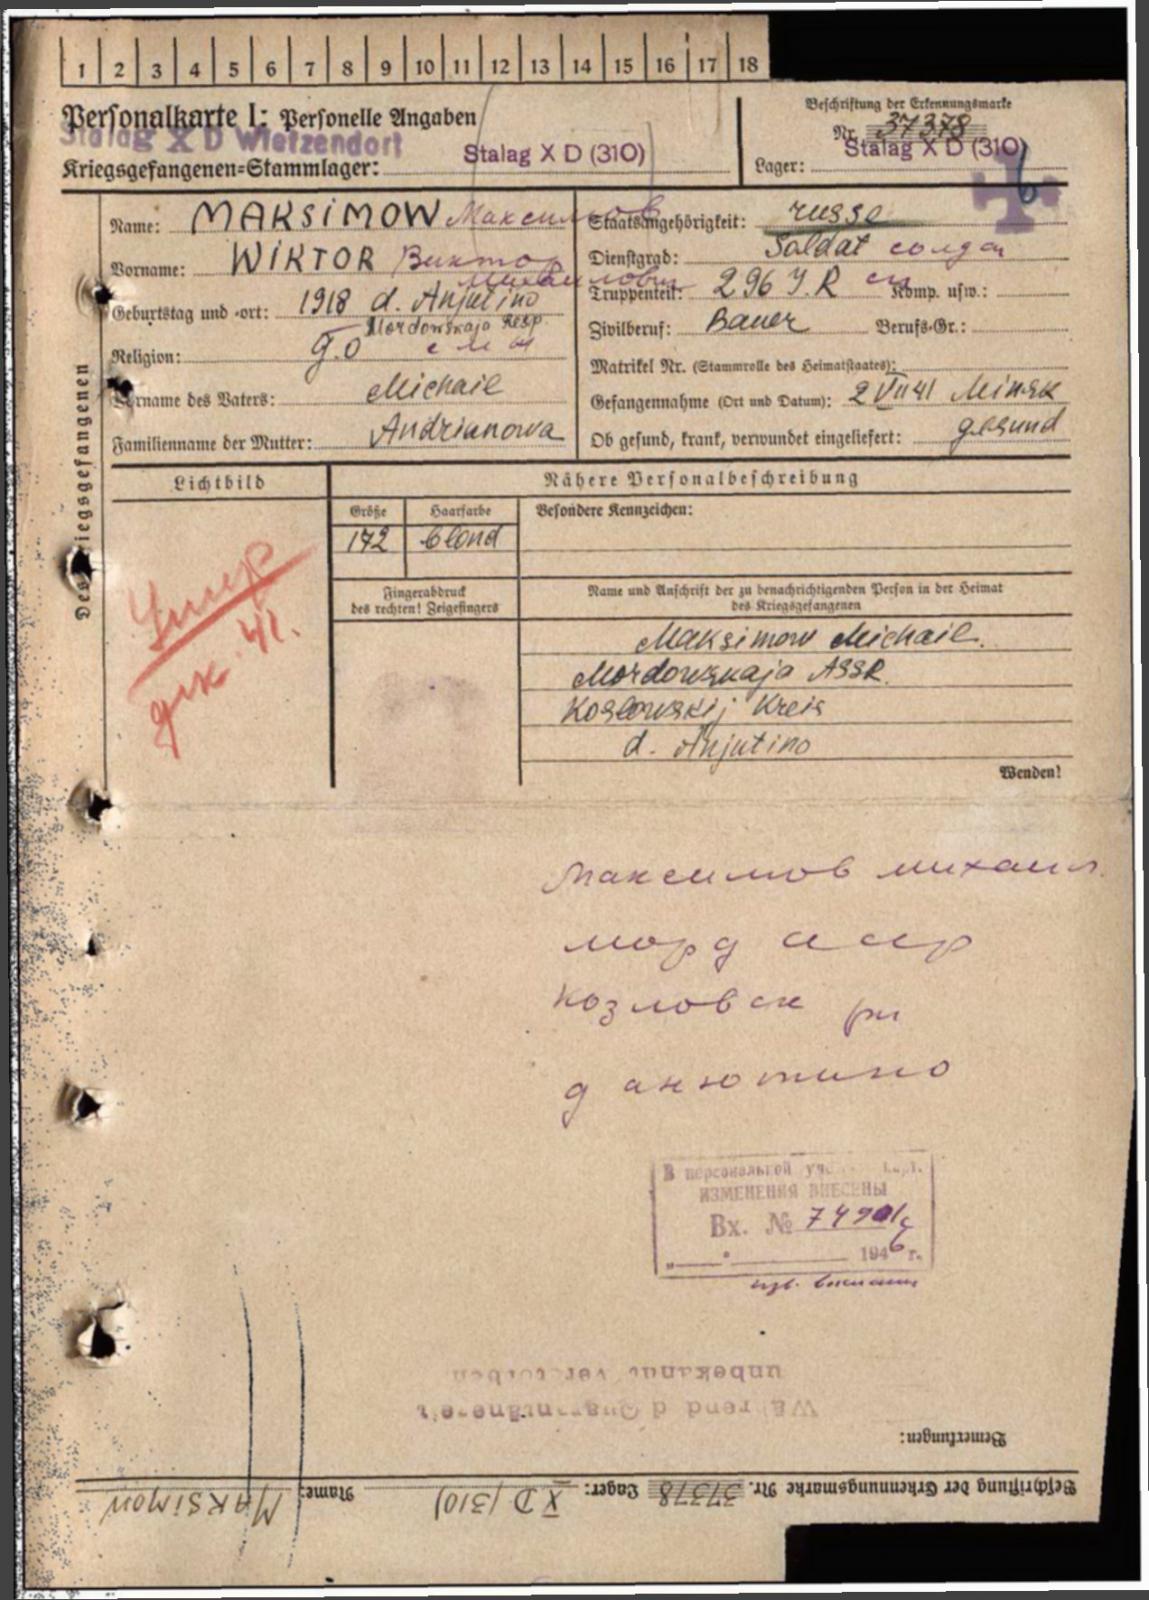 1 2 3 4 5 6 7 8 9 10 11 12 13 14 15 16 17 18
Personalkarte I: Personelle Angaben
Stalag X D Wietzendorf
Kriegsgefangenen=Stammlager: Stalag X D (310)
Beschriftung der Erkennungsmarke
Nr. 37378
Lager: Stalag X D (310)
Des Kriegsgefangenen
Name: MAKSIMOW Максимов
Vorname: WIKTOR Виктор
Михаилович
Geburtstag und -ort: 1918 d. Anjutino
Mordowskaja Resp.
Religion: g.o
Vorname des Vaters: Michail
Familienname der Mutter: Andrianowa
Staatsangehörigkeit: russe
Dienstgrad: Soldat солдат
Truppenteil: 296 J.R Komp. usw.:
Zivilberuf: Bauer Berufs-Gr.:
Matrikel Nr. (Stammrolle des Heimatstaates):
Gefangennahme (Ort und Datum): 2 VII 41 Minsk
Ob gesund, krank, verwundet eingeliefert: gesund
Lichtbild
Nähere Personalbeschreibung
Größe Haarfarbe Besondere Kennzeichen:
172 blond
Умер
дек. 41.
Fingerabdruck
des rechten! Zeigefingers
Name und Anschrift der zu benachrichtigenden Person in der Heimat
des Kriegsgefangenen
Maksimow Michail.
Mordowskaja ASSR.
Koslowskij Kreis
d. Anjutino
Wenden!
Максимов михаил
морд асср
козловск рн
д анютино
В персональной уч. карт.
ИЗМЕНЕНИЯ ВНЕСЕНЫ
Вх. № 74901с
1946 г.
Während d Quarantänezeit
unbekannt verstorben
Bemerkungen:
Beschriftung der Erkennungsmarke Nr. 37378 Lager: X D (310) Name: MAKSIMOW